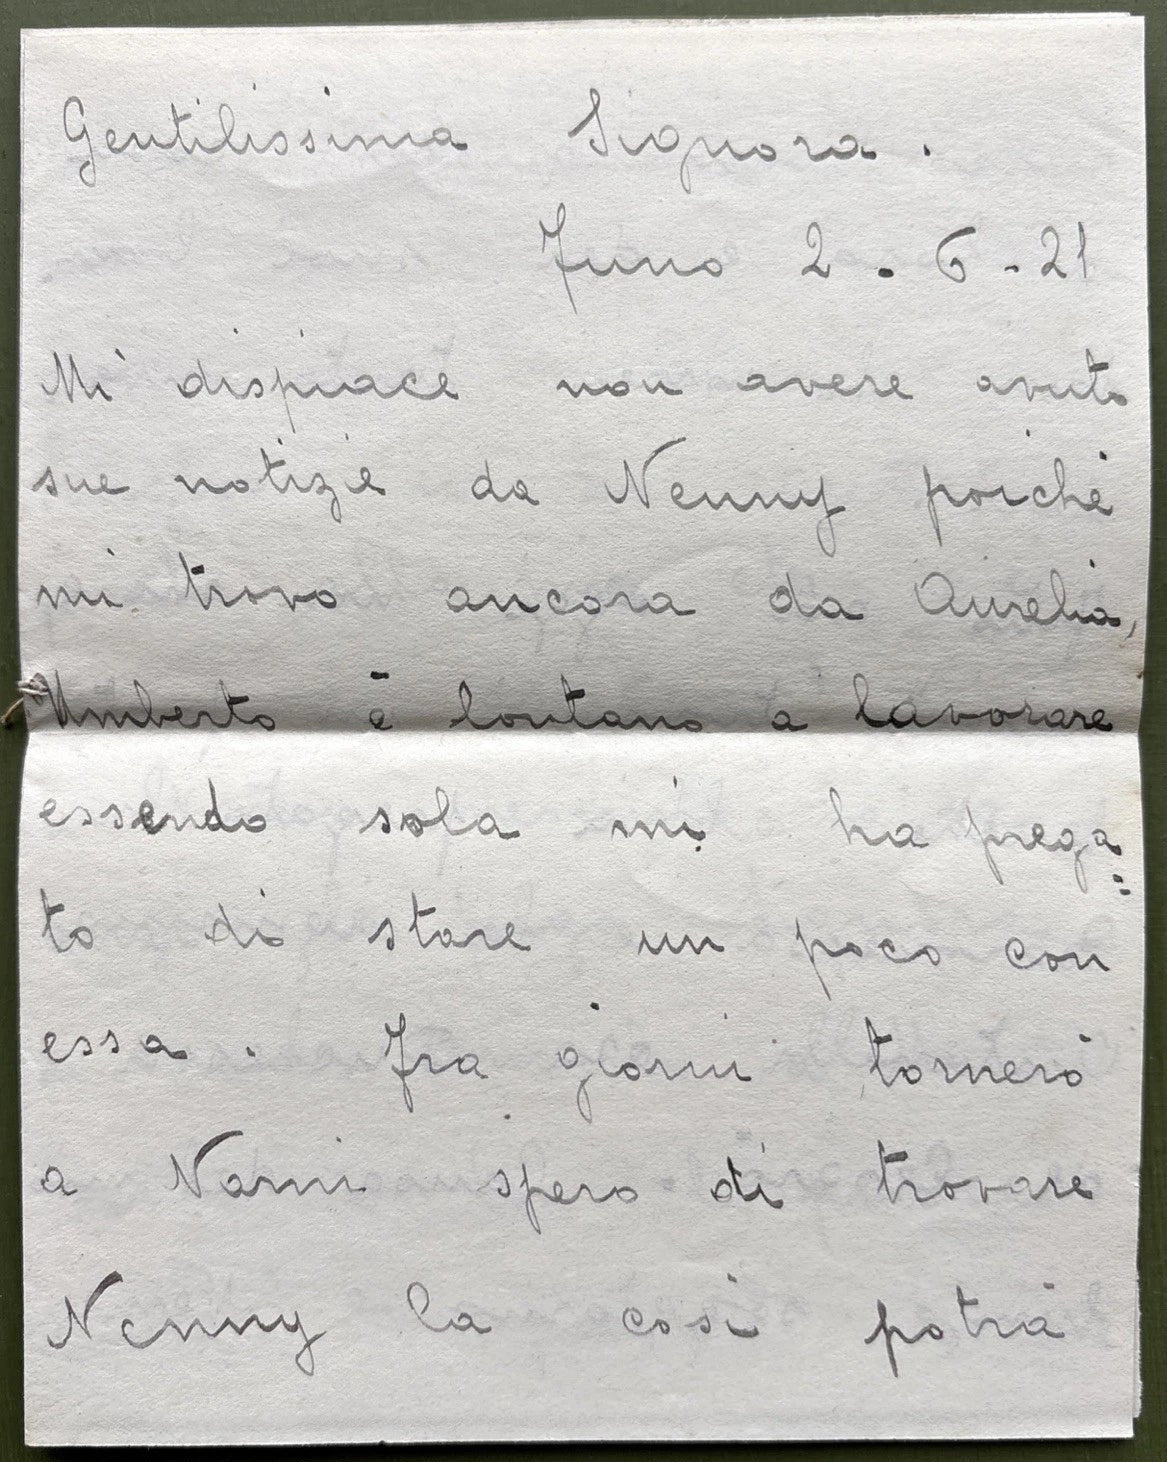 Gentilissima Signora.
Juno 2.6.21
Mi dispiace non avere avuto
sue notizie da Nenny poichè
mi trovo ancora da Aurelia,
Umberto è lontano a lavorare
essendo sola mi ha prega=
to di stare un poco con
essa. Fra giorni tornerò
a Narni spero di trovare
Nenny la così potrà